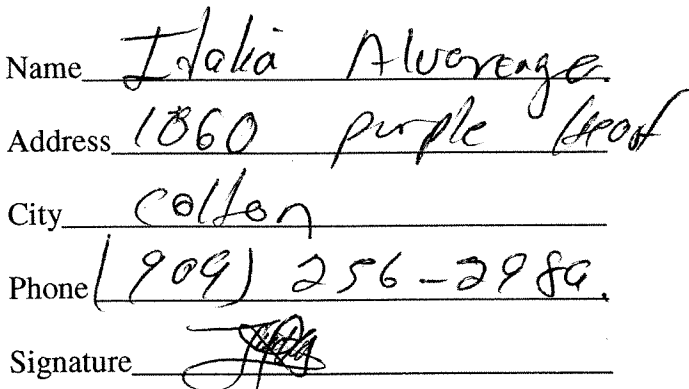 Name Idalia Alvarenga
Address 1860 purple Heart
City Colton
Phone (909) 256-2989.
Signature